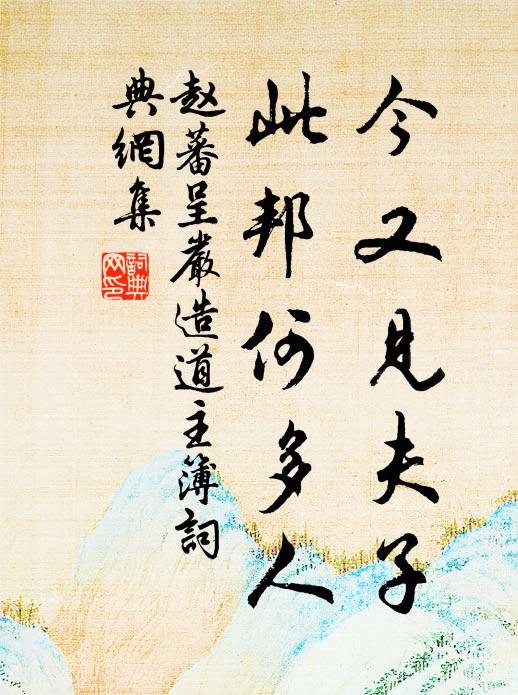 今又見夫子
此邦何多人
赵蕃呈嚴造道主簿詞
典網集
詞典网印